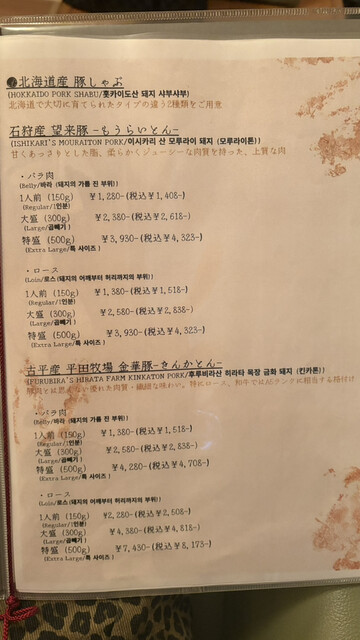 ❷北海道産 豚しゃぶ
(HOKKAIDO PORK SHABU/홋카이도산 돼지 샤부샤부)
北海道で大切に育てられたタイプの違う2種類をご用意
石狩産 望来豚-もうらいとん-
(ISHIKARI'S MOURAITON PORK/이시카리 산 모루라이 돼지 (모루라이톤))
甘くあっさりとした脂、柔らかくジューシーな肉質を持った、上質な肉
・バラ肉
(Belly/바라 (돼지의 가름 진 부위))
1人前 (150g) ¥1,280-(税込¥1,408-)
(Regular/1인분)
大盛 (300g) ¥2,380-(税込¥2,618-)
(Large/곱빼기)
特盛 (500g) ¥3,930-(税込¥4,323-)
(Extra Large/특 사이즈)
・ロース
(Loin/로스 (돼지의 어깨부터 허리까지의 부위))
1人前 (150g) ¥1,380-(税込¥1,518-)
(Regular/1인분)
大盛 (300g) ¥2,580-(税込¥2,838-)
(Large/곱빼기)
特盛 (500g) ¥3,930-(税込¥4,323-)
(Extra Large/특 사이즈)
古平産 平田牧場 金華豚-きんかとん-
(FURUBIRA'S HIRATA FARM KINKATON PORK/후루비라산 히라타 목장 금화 돼지 (킨카톤))
豚肉とは思えない優れた肉質・繊細な味わい。特にロース、和牛ではA5ランクに相当する格付け
・バラ肉
(Belly/바라 (돼지의 가름 진 부위))
1人前 (150g) ¥1,380-(税込¥1,518-)
(Regular/1인분)
大盛 (300g) ¥2,580-(税込¥2,838-)
(Large/곱빼기)
特盛 (500g) ¥4,280-(税込¥4,708-)
(Extra Large/특 사이즈)
・ロース
(Loin/로스 (돼지의 어깨부터 허리까지의 부위))
1人前 (150g) ¥2,280-(税込¥2,508-)
(Regular/1인분)
大盛 (300g) ¥4,380-(税込¥4,818-)
(Large/곱빼기)
特盛 (500g) ¥7,430-(税込¥8,173-)
(Extra Large/특 사이즈)